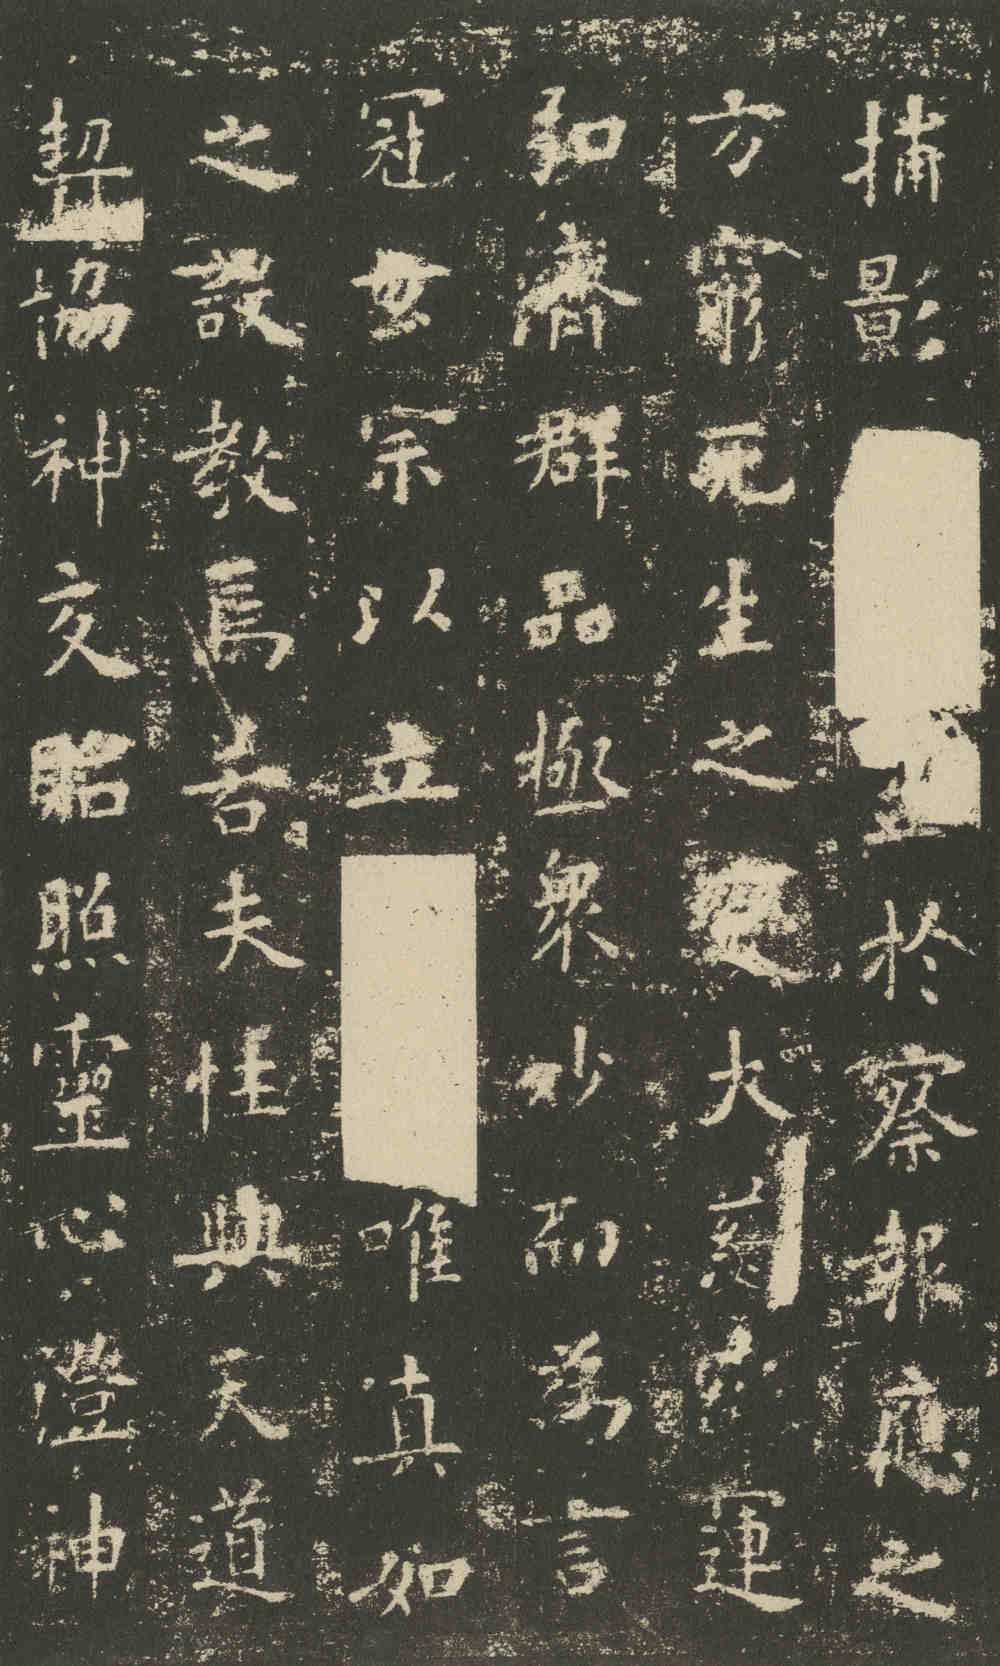 捕影於察報應之
方窮死生之變大慈運
弘濟群品極衆妙而為言
冠世宗以立唯真如
之設教焉若夫性與天道
契協神交昭照靈心澄神